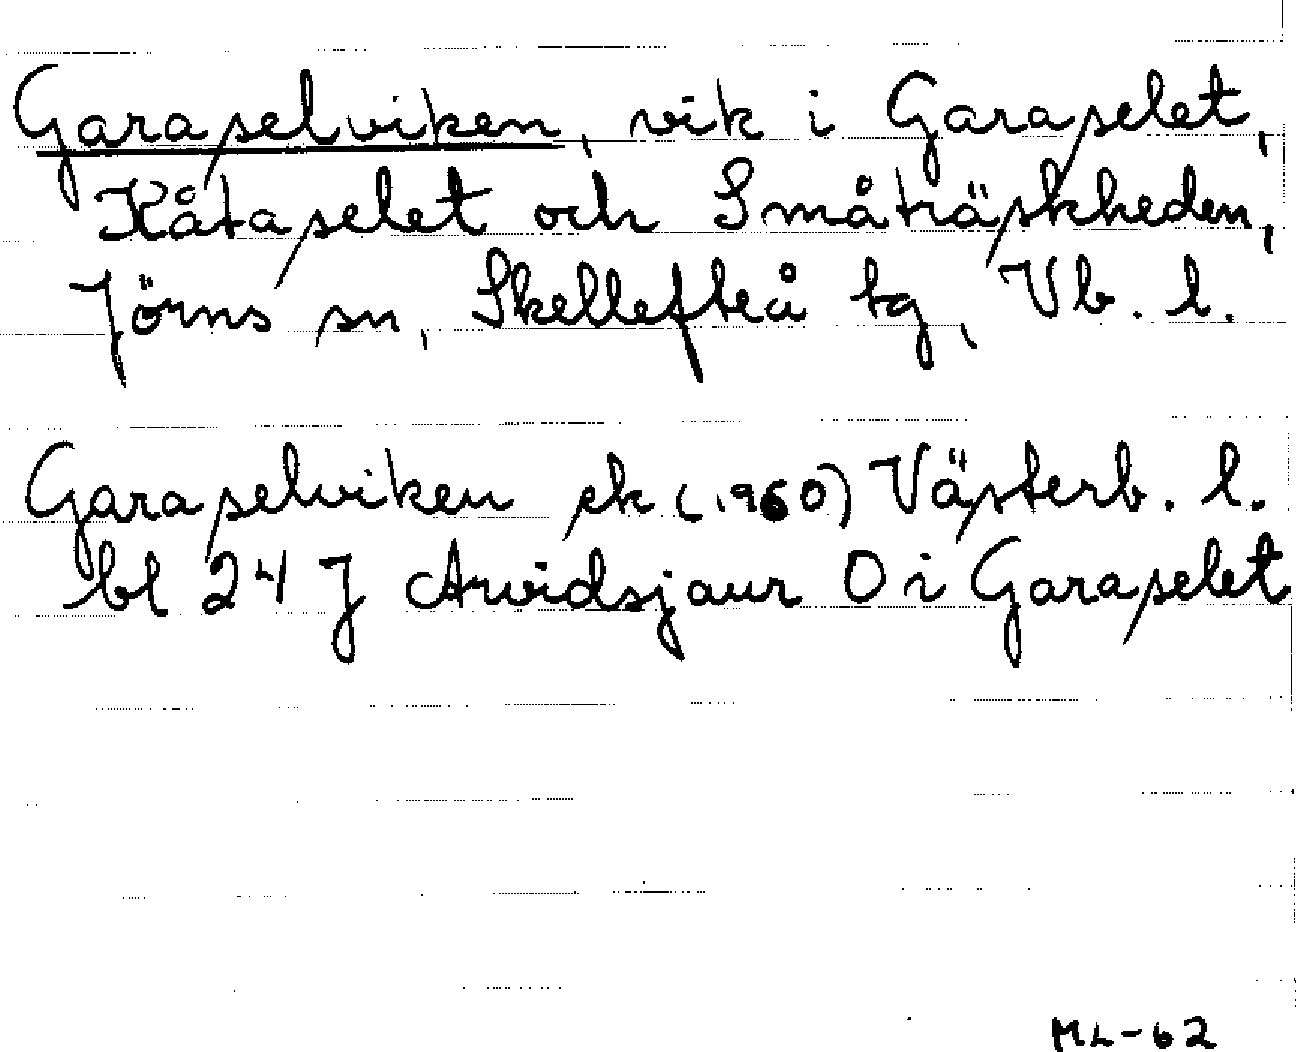 Garaselviken, vik i Garaselet,
Kåtaselet och Småträskheden,
Jörns sn, Skellefteå tg, Vb. l.
Garaselviken ek (1960) Västerb. l.
bl 24 J Arvidsjaur O i Garaselet
ML-62